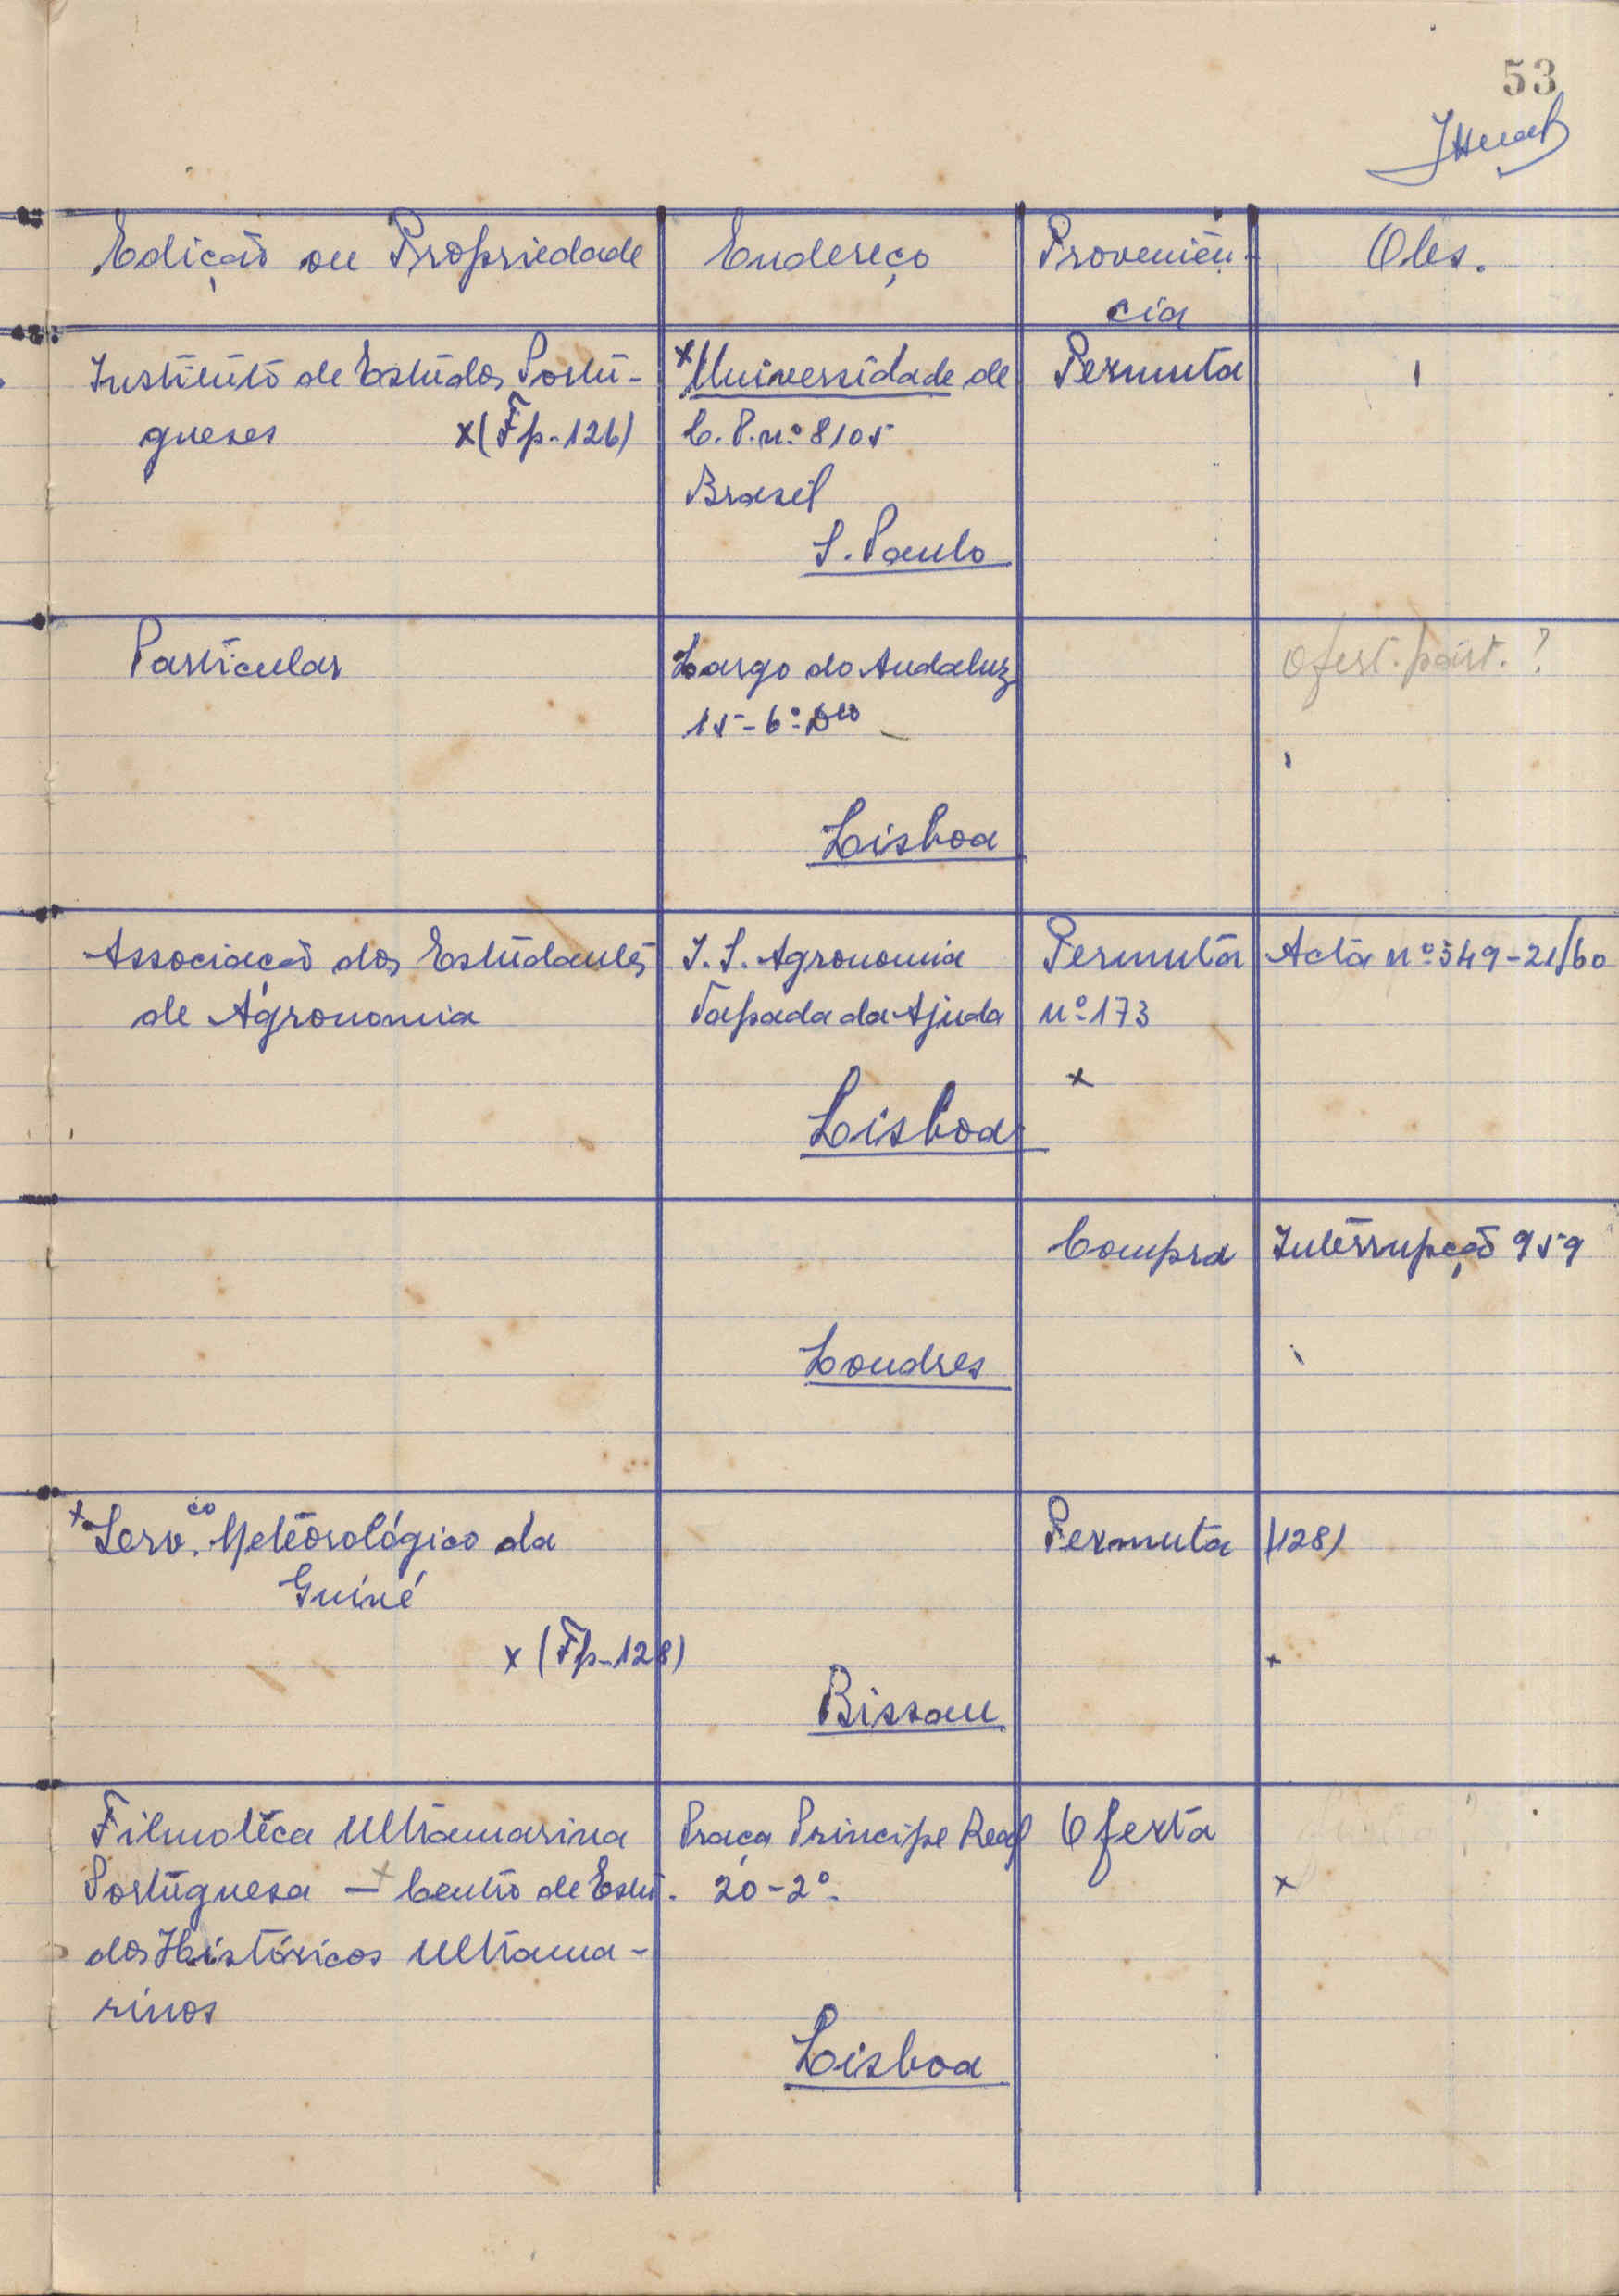 53
Edição ou Propriedade Endereço Proveniên-
cia Obs.
Instituto de Estudos Portu-
gueses x(Fp-126)
x Universidade de
C. P. nº 8105
Brasil
S. Paulo
Permuta
Particular
Largo do Andaluz
15-6º Dto
Lisboa
Ofert. part. ?
Associação dos Estudantes
de Agronomia
I. S. Agronomia
Tapada da Ajuda
Lisboa
Permuta
nº 173
x
Acta nº 549-21/60
Londres
Compra
Interrupção 959
x Serv.ço Meteorológico da
Guiné
x (Fp-128)
Bissau
Permuta
(128)
x
Filmoteca Ultramarina
Portuguesa - Centro de Estu-
dos Históricos Ultrama-
rinos
Praça Principe Real
20-2º
Lisboa
Oferta
x